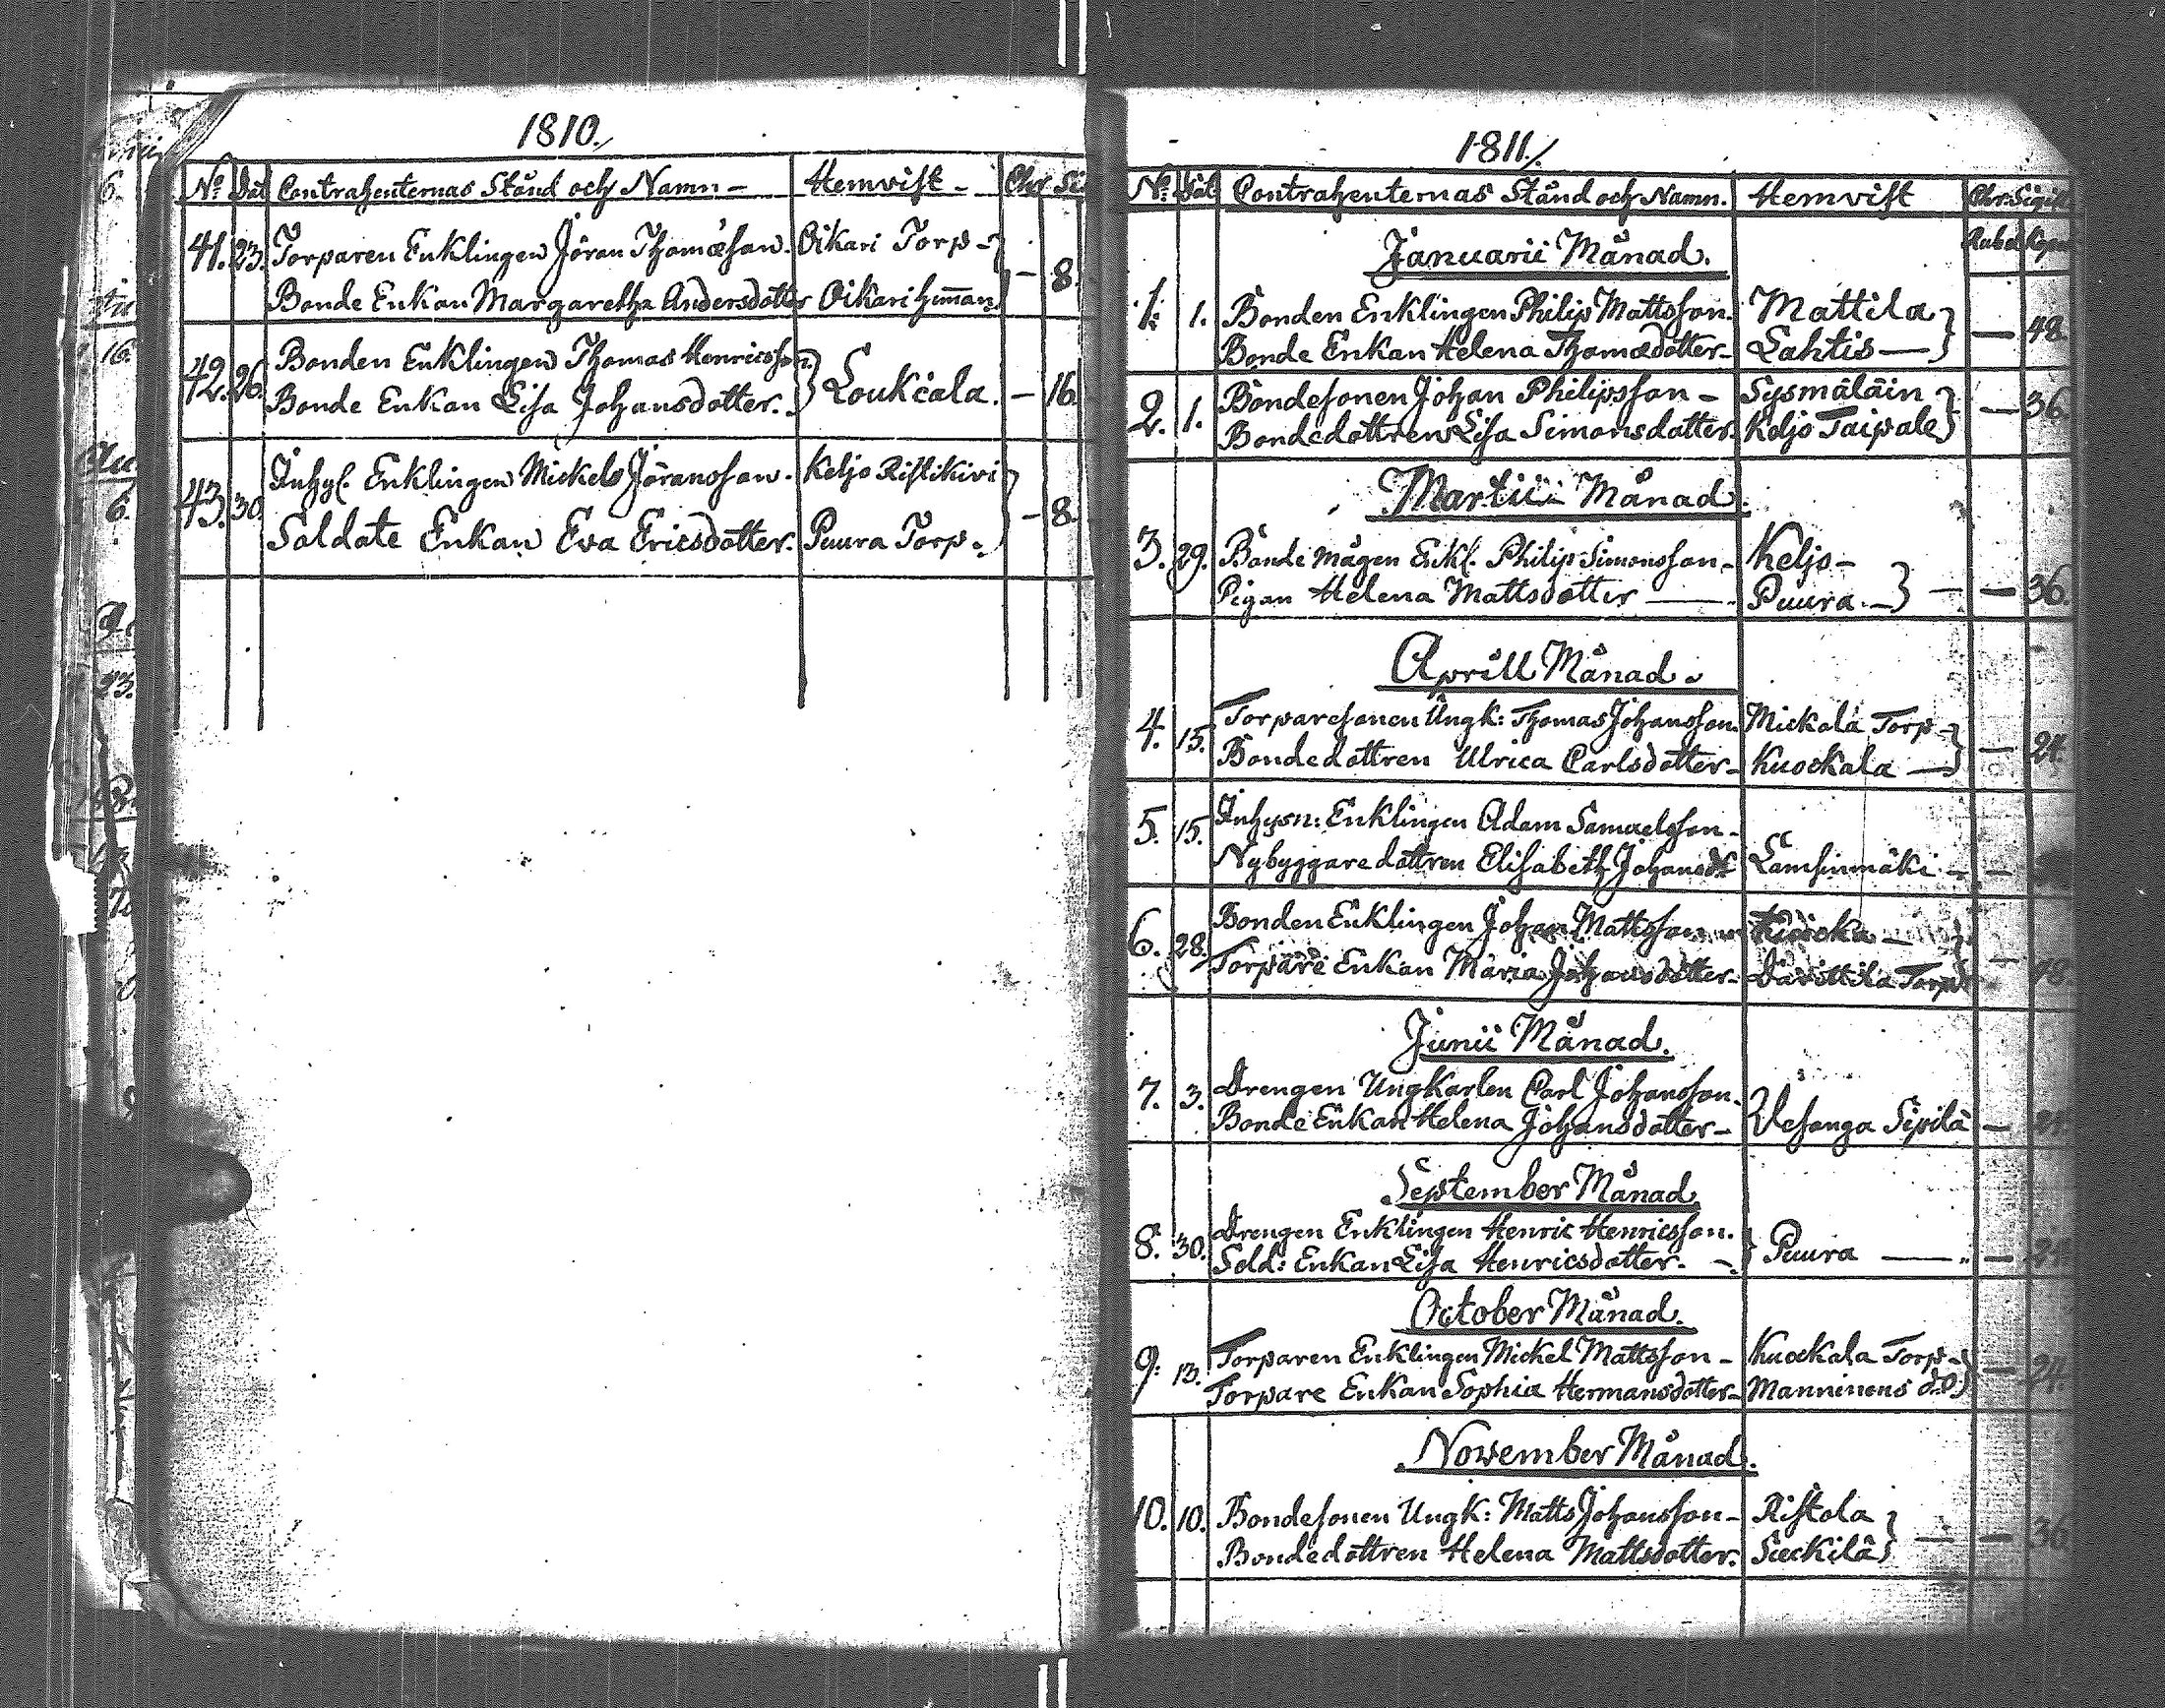 1810.
No Dat Contrahenternas Stånd och Namn - Hemvist -
41. 23. Torparen Enklingen Jöran Thomæson. Oikari Torp -
Bonde Enkan Margaretha Andersdotter Oikari hemman - 8.
42. 26. Bonden Enklingen Thomas Henricsson.
Bonde Enkan Lisa Johansdotter. Loukčala. - 16.
43. 30. Inhys. Enklingen Mickel Jöransson. Keljo Ristikivi
Soldate Enkan Eva Ericsdotter. Puura Torp. - 8.
1811.
No Dat Contrahenternas Stånd och Namn. Hemvist Chr. Sigill
Rubel Kop
Januarii Månad.
1. 1. Bonden Enklingen Philip Mattsson. Mattila
Bonde Enkan Helena Thomædotter - Lahtis — — 48.
2. 1. Bondesonen Johan Philipsson - Sysmäläin
Bondedottren Lisa Simonsdotter. Keljo Taipale — 36.
Martii Månad.
3. 29. Bonde Mågen Enkl. Philip Simonsson - Keljo -
Pigan Helena Mattsdotter — Puura. — — 36.
Aprill Månad.
4. 15. Torparesonen Ungk: Thomas Johansson. Mickola Torp -
Bondedottren Ulrica Carlsdotter - Kuockala — — 24.
5. 15. Inhysn: Enklingen Adam Samuelsson -
Nybyggare dottren Elisabeth Johansdr Lamsinmäki -
6. 28. Bonden Enklingen Johan Mattsson
Torpare Enkan Maria Johansdotter - Davittila Torp 48
Junii Månad.
7. 3. Drengen Ungkarlen Carl Johansson.
Bonde Enkan Helena Johansdotter - Vesanga Sipilä —
September Månad
8. 30. Drengen Enklingen Henric Henricsson.
Sold: Enkan Lisa Henricsdotter. - Puura — —
October Månad.
9. 13. Torparen Enklingen Mickel Mattsson - Kuockala Torp -
Torpare Enkan Sophia Hermansdotter - Manninens do. — 24.
November Månad.
10. 10. Bondesonen Ungk: Matts Johansson - Ristola
Bondedottren Helena Mattsdotter. Sieckilä — 36.